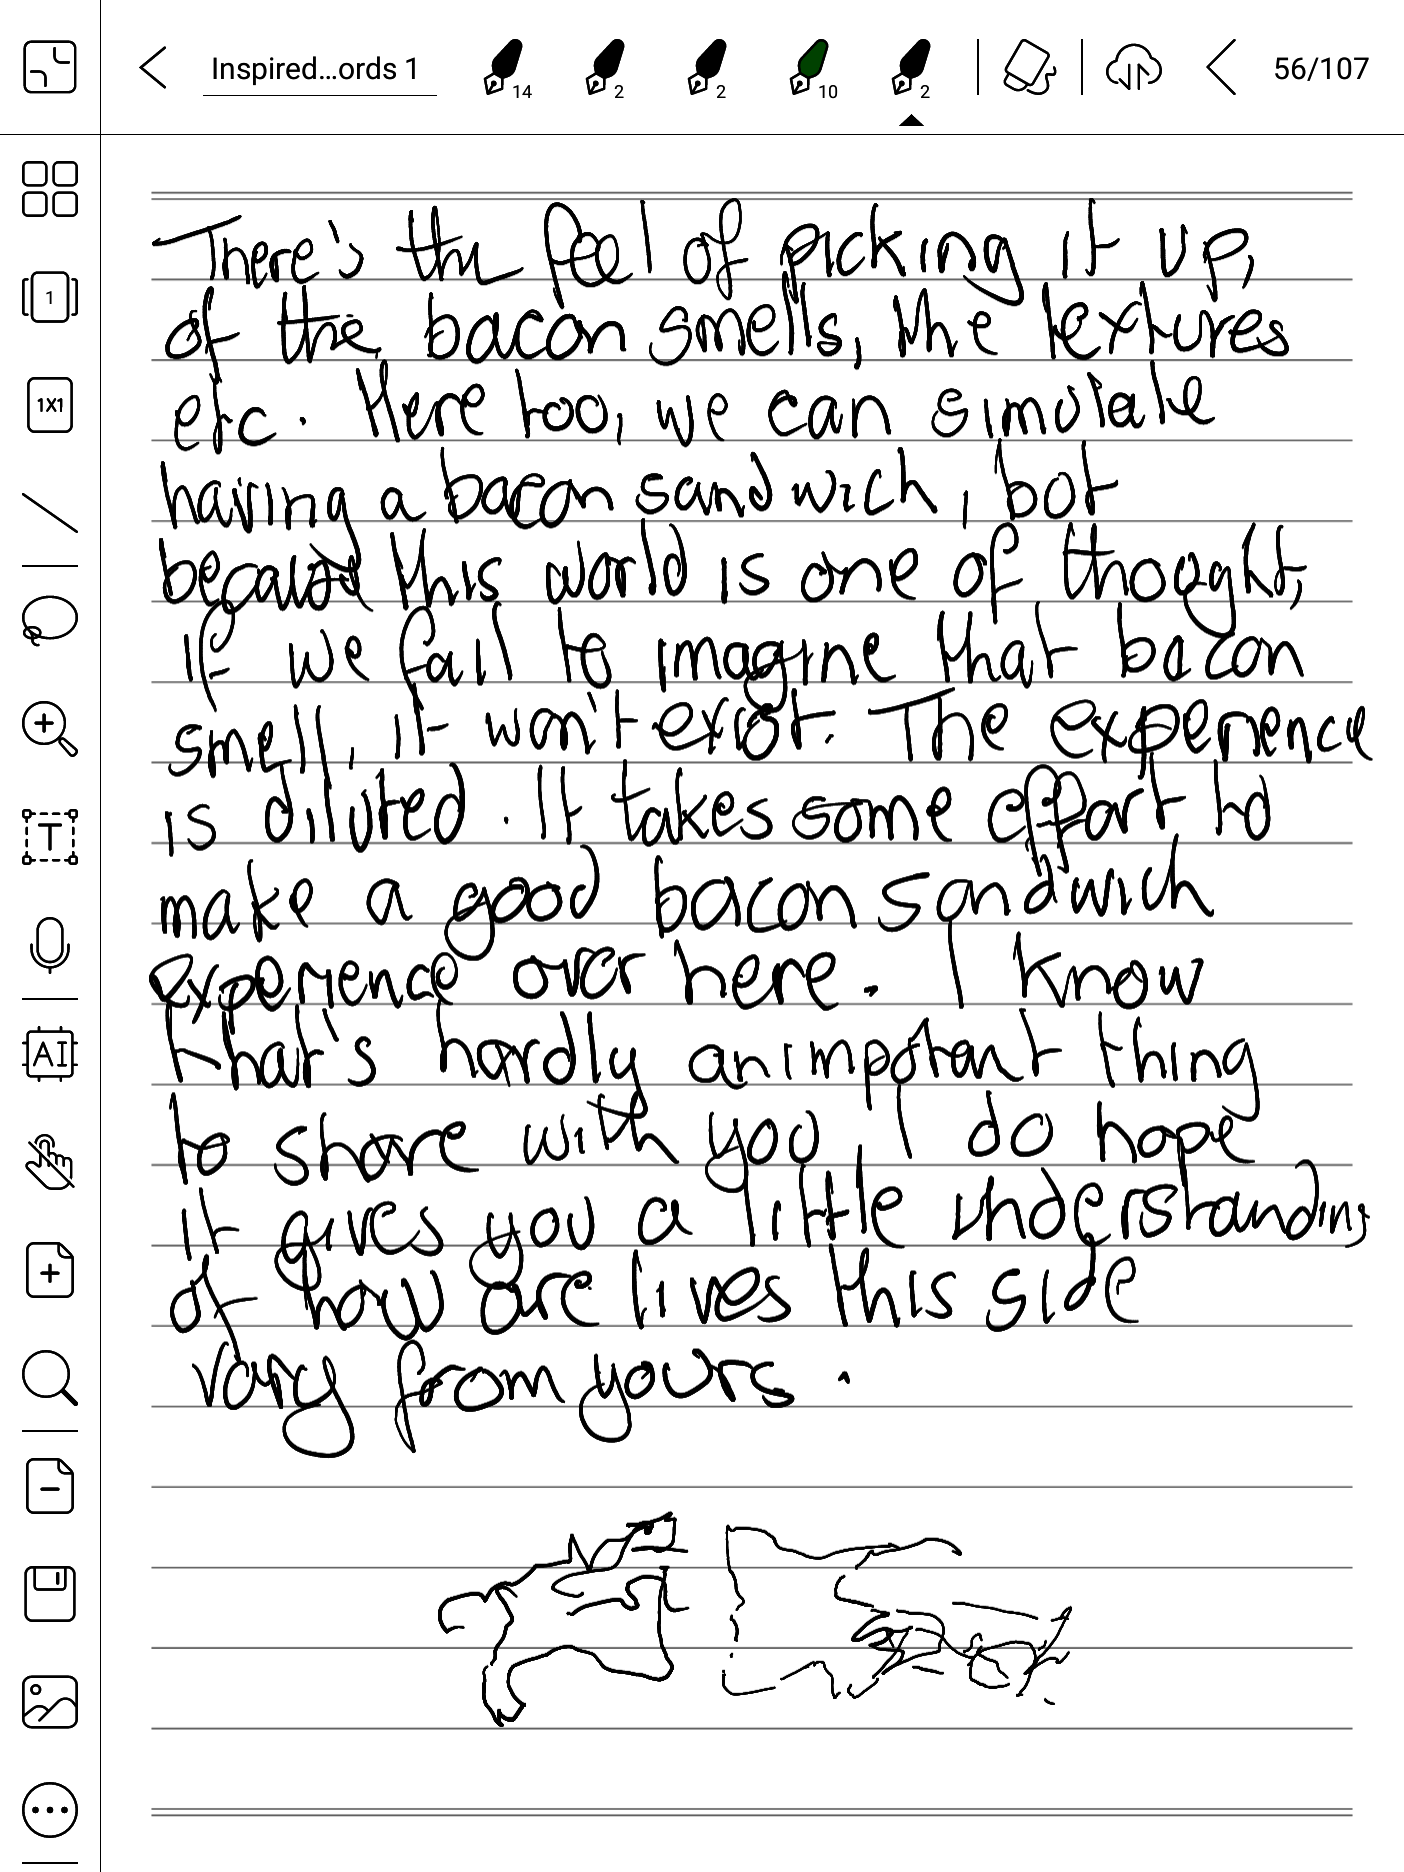 Inspired...ords 1
14
2
2
10
2
56/107
1
1X1
T
AI
There's the feel of picking it up,
of the bacon smells, the textures
etc. Here too, we can simulate
having a bacon sandwich, but
because this world is one of thought,
if we fail to imagine that bacon
smell, it won't exist. The experience
is diluted. It takes some effort to
make a good bacon sandwich
experience over here. I know
that's hardly an important thing
to share with you, I do hope
it gives you a little understanding
of how are lives this side
vary from yours.